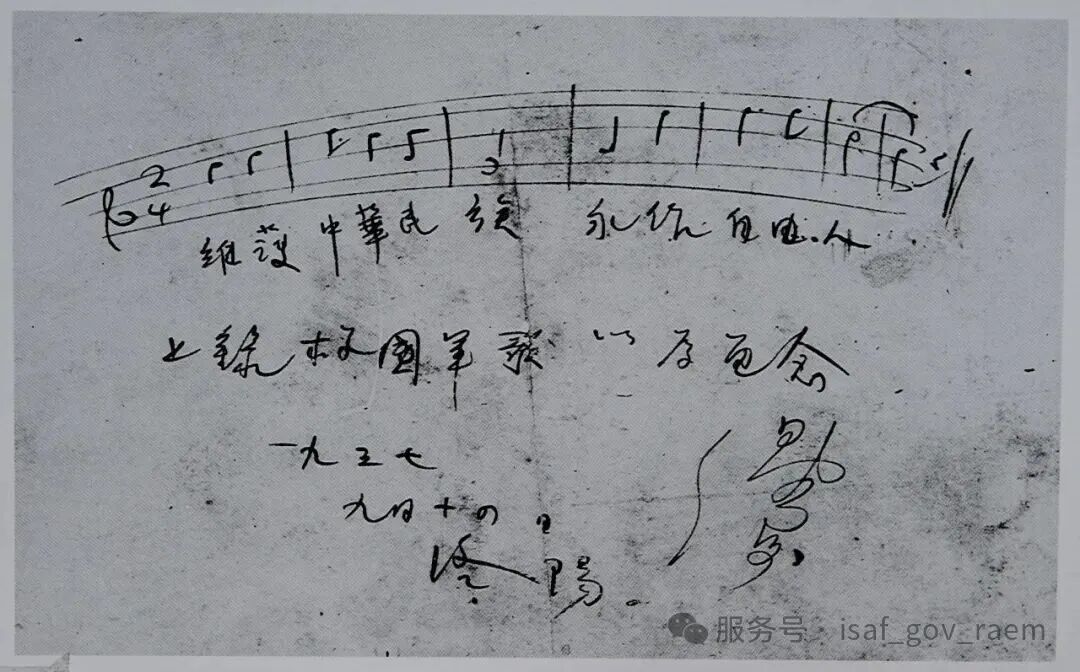 2
4
維護中華民族 永作自由人
上錄救國軍歌 以為紀念
一九三七
九月十四日
洛陽。
服务号 · isaf_gov_raem